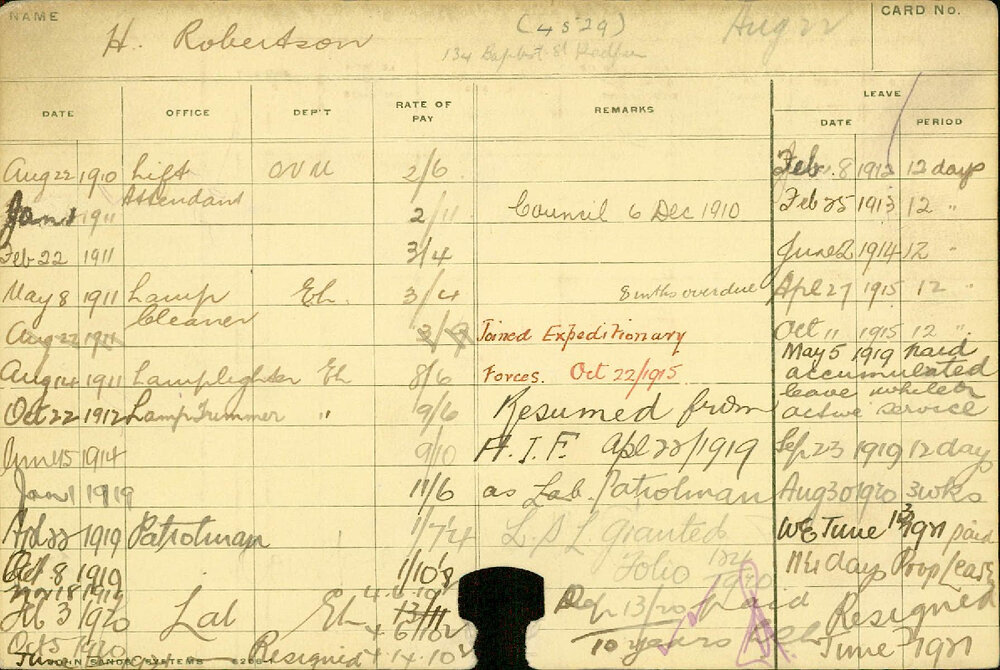 NAME H. Robertson (4529) Aug 22 CARD No.
134 Baptist St Redfern
LEAVE
DATE OFFICE DEP'T RATE OF PAY REMARKS DATE PERIOD
Aug 22 1910 Lift Attendant QVM 2/6 Feb. 8 1912 12 days
Jan 1 1911 2/11 Council 6 Dec 1910 Feb 25 1913 12 "
Feb 22 1911 3/4 June 2 1914 12 "
May 8 1911 Lamp Cleaner El. 3/4 8 mths overdue Apl 27 1915 12 "
Aug 22 1911 Joined Expeditionary Oct 11 1915 12 "
May 5 1919 paid
Aug 14 1911 Lamplighter El 8/6 Forces. Oct 22/1915 accumulated
leave whilst on
Oct 22 1912 Lamp Trimmer " 9/6 Resumed from active service
June 15 1914 9/10 A.I.F. Apl 22/1919 Sep 23 1919 12 days
Jan 1 1919 11/6 as Lab. Patrolman Aug 30 1920 3 wks
Apl 22 1919 Patrolman L.S.L. Granted WE June 1921 paid
Oct 8 1919 Folio days Prop Leave
Nov 18 1919
Feb 3 1920 Lab El Sep 13/20 paid Resigned
Oct 5 1920 Resigned 10 years June 1921
JOHN SANDS SYSTEMS